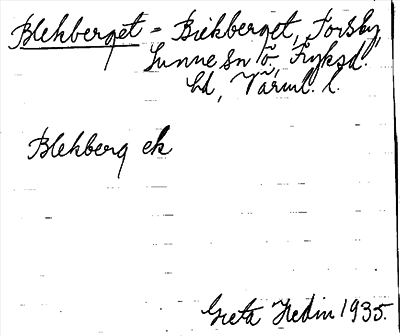 Blekberget = Björkberget, Torsby,
Sunne sn ö., Fryksd.
hd, Värml. l.
Blekberg ek
Greta Hedin 1935.